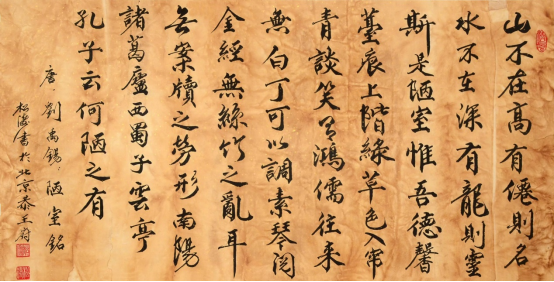 山不在高有僊則名
水不在深有龍則靈
斯是陋室惟吾德馨
薹痕上階緑草色入帘
青談笑有鴻儒往来
無白丁可以調素琴閲
金經無絲竹之亂耳
无案牘之勞形南陽
諸葛廬西蜀子雲亭
孔子云何陋之有
唐·劉禹錫·陋室銘
書於北京恭王府